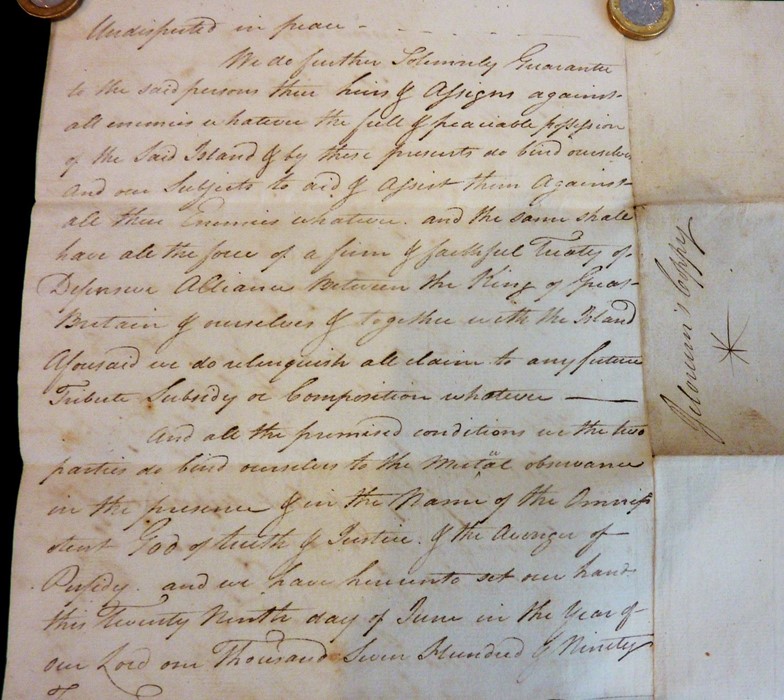 Undisputed in peace -
We do further Solemnly Guarantee
to the said persons their heirs & Assigns against
all enemies whatever the full & peaciable possession
of the Said Island & by these presents do bind ourselves
And our Subjects to aid & Assist them Against
all their Enemies whatever. and the same shall
have all the force of a firm & faithful Treaty of
Defensive Alliance between the King of Great
Britain & ourselves & together with the Island
Aforesaid we do relinquish all claim to any future
Tribute Subsidy or Composition whatever —
And all the promised conditions we the two
parties do bind ourselves to the Mutual observance
in the presence & in the Name of the Omnip
otent God of truth & Justice. & the Avenger of
Perfidy. and we have hereunto set our hands
this Twenty Ninth day of June in the Year of
our Lord one Thousand Seven Hundred & Ninety
Copy